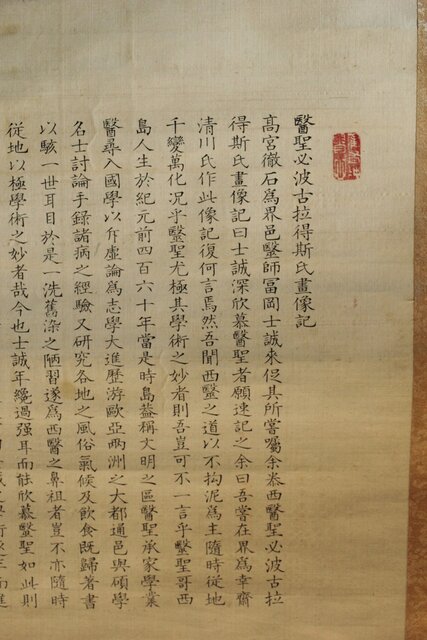 醫聖必波古拉得斯氏畫像記
髙宮徹石為界邑醫師冨岡士誠来促其所嘗囑余泰西醫聖必波古拉
得斯氏畫像記曰士誠深欣慕醫聖者願速記之余曰吾嘗在界為幸齋
清川氏作此像記復何言焉然吾聞西醫之道以不拘泥為主隨時従地
千變萬化况乎醫聖尤極其學術之妙者則吾豈可不一言乎醫聖哥西
島人生於紀元前四百六十年當是時島蓋稱文明之區醫聖承家學業
醫尋入國學以斥虛論為志學大進歷游歐亞兩洲之大都通邑與碩學
名士討論手録諸病之經驗又研究各地之風俗氣候及飲食既歸著書
以駭一世耳目於是一洗舊染之陋習遂為西醫之鼻祖者豈不亦隨時
従地以極學術之妙者哉今也士誠年纔過强耳而能欣慕醫聖如此則